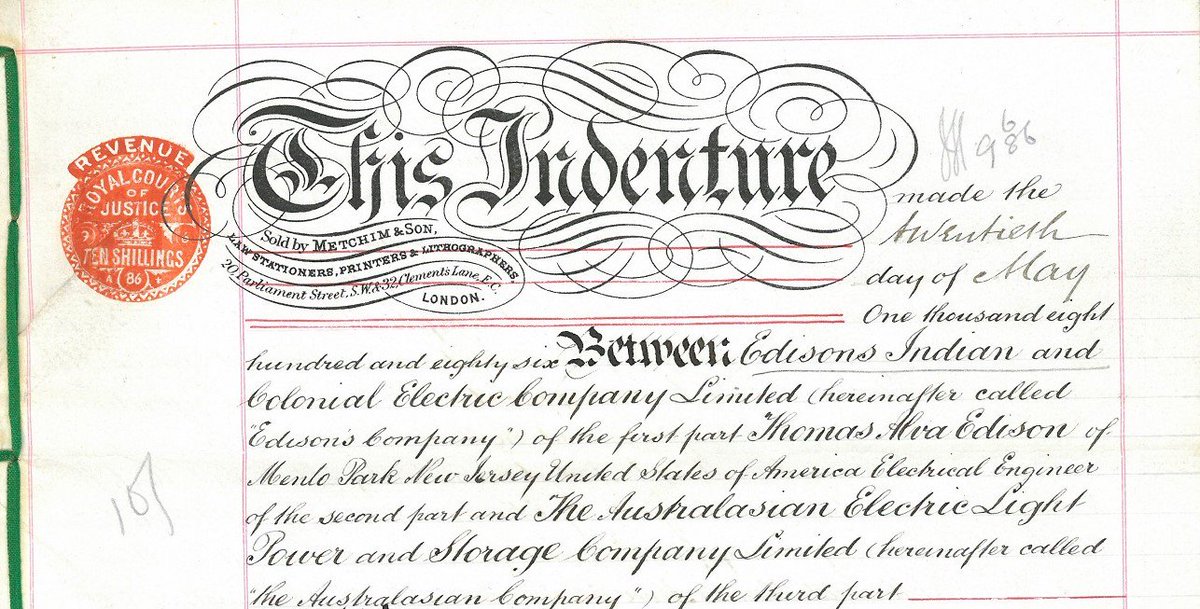 REVENUE
ROYAL COURTS
OF
JUSTICE
TEN SHILLINGS
86
This Indenture
Sold by METCHIM & SON,
LAW STATIONERS, PRINTERS & LITHOGRAPHERS,
20, Parliament Street, S.W. & 32, Clement's Lane, E.C.
LONDON.
made the
twentieth
day of May
One thousand eight
hundred and eighty six Between Edisons Indian and
Colonial Electric Company Limited (hereinafter called
"Edison's Company") of the first part Thomas Alva Edison of
Menlo Park New Jersey United States of America Electrical Engineer
of the second part and The Australasian Electric Light
Power and Storage Company Limited (hereinafter called
"the Australasian Company") of the third part